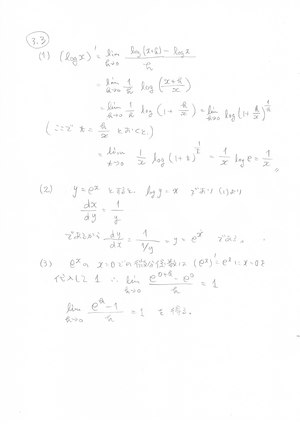 3.3
(1) (log x)' = lim_{h→0} (log(x+h) − log x)/h
= lim_{h→0} 1/h log((x+h)/x)
= lim_{h→0} 1/h log(1 + h/x) = lim_{h→0} log(1 + h/x)^{1/h}
(ここで t = h/x とおくと)
= lim_{t→0} 1/x log(1+t)^{1/t} = 1/x log e = 1/x 。
(2) y = e^x とすると、log y = x であり (1)より
dx/dy = 1/y
であるから dy/dx = 1/(1/y) = y = e^x である。
(3) e^x の x=0 での微分係数は (e^x)' = e^x に x=0 を
代入して 1 ∴ lim_{h→0} (e^{0+h} − e^0)/h = 1
lim_{h→0} (e^h − 1)/h = 1 を得る。